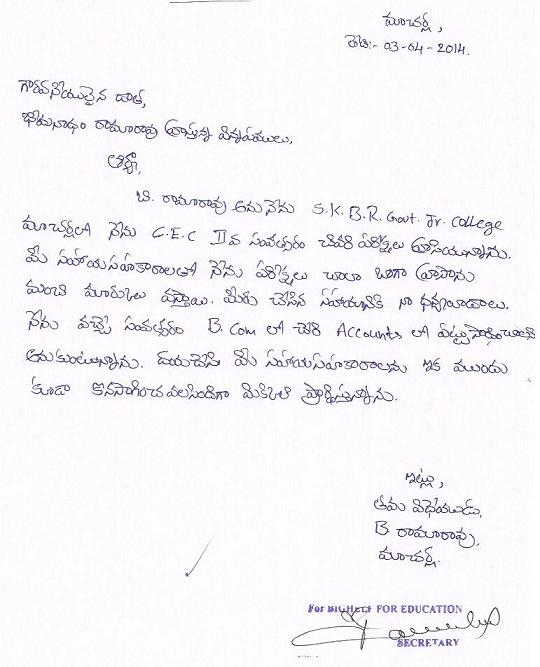 మాచర్ల,
తేది:- 03-04-2014.
గౌరవనీయులైన దాత,
భీమనాధం రామారావు వ్రాస్తున్న విన్నపములు,
ఆర్యా,
బి. రామారావు అను నేను S.K.B.R. Govt. Jr. College
మాచర్లలో నేను C.E.C IIవ సంవత్సరం చివరి పరీక్షలు వ్రాసియున్నాను.
మీ సహాయసహకారాలతో నేను పరీక్షలు చాలా బాగా వ్రాసాను
మంచి మార్కులు వస్తాయి. మీరు చేసిన సహాయానికి నా ధన్యవాదాలు.
నేను వచ్చే సంవత్సరం B.Com లో చేరి Accounts లో పట్టుసాధించాలని
అనుకుంటున్నాను. దయచేసి మీ సహాయసహకారాలను ఇక ముందు
కూడా కొనసాగించవలసిందిగా మిక్కిలి ప్రార్థిస్తున్నాను.
ఇట్లు,
తమ విధేయుడు,
B. రామారావు,
మాచర్ల.
For HIGHER FOR EDUCATION
SECRETARY